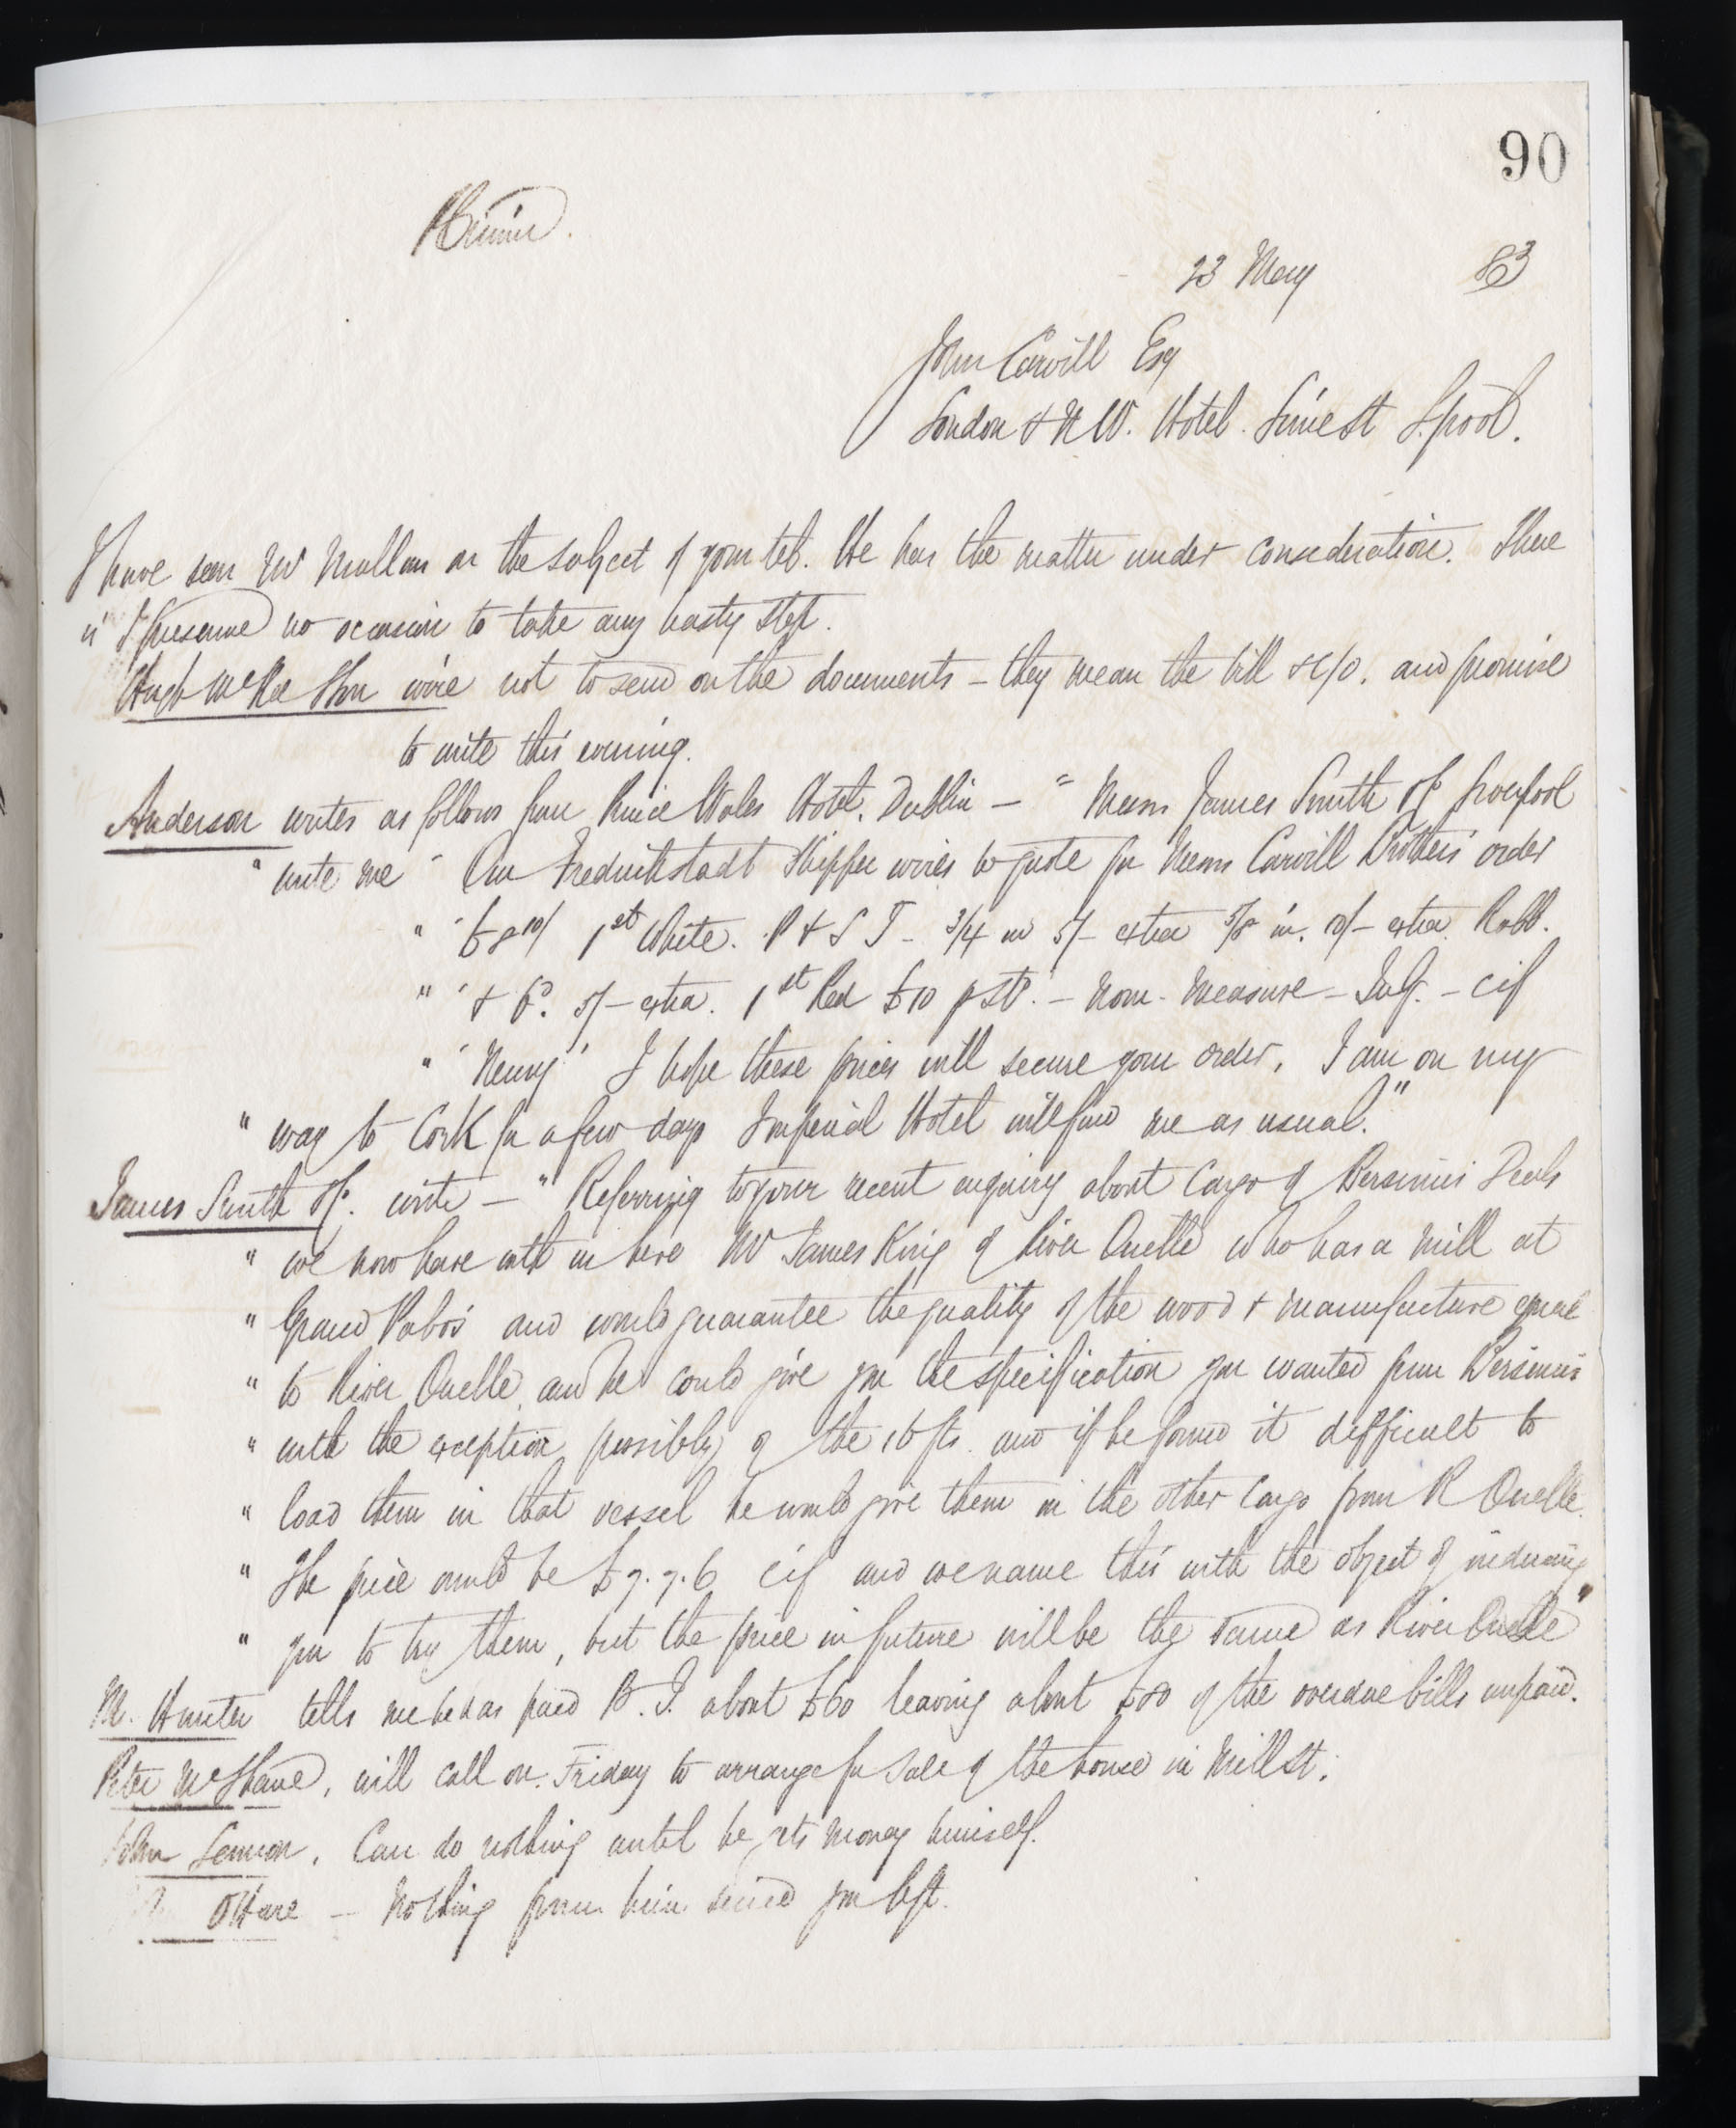 90
23 May 83
John Carvill Esq
London & N W. Hotel. Lime St L.pool.
I have seen Mr Mullan on the subject of your tel. He has the matter under consideration. There
is I presume no occasion to take any hasty step.
Hugh McKee & Son wire not to send on the documents – they mean the bill & c/p. and promise
to write this evening.
Anderson writes as follows from Prince Wales Hotel, Dublin – " Messrs James Smith & Co Liverpool
" write me " Our Fredrikstadt Shipper wires to quote for Messrs Carvill Brothers' order
" " £8 10/ 1st White. P & S J – 3/4 in 5/– extra 5/8 in. 10/– extra.
" " & 5/– extra. 1st Red £10 p Std. – Nom. Measure – July. – cif
" " Newry" I hope these prices will secure your order. I am on my
" way to Cork for a few days Imperial Hotel will find me as usual."
James Smith & Co. write – " Referring to your recent enquiry about Cargo of Bersimis Deals
" we now have with us here Mr James King of River Ouelle who has a mill at
" Grand Pabos and would guarantee the quality of the wood & manufacture equal
" to River Ouelle, and he could give you the specification you wanted from Bersimis
" with the exception possibly of the 16 fts. and if he found it difficult to
" load them in that vessel he would give them in the other Cargo from R Ouelle.
" The price would be £7.7.6 cif and we name this with the object of inducing
" you to try them, but the price in future will be the same as River Ouelle"
M. Hunter tells me he has paid B. I. about £60 leaving about £80 of the overdue bills unpaid.
Peter McShane, will call on Friday to arrange for Sale of the house in Mill St.
John Lennon. Can do nothing until he gets money himself.
O'Hare – Nothing from him since you left.